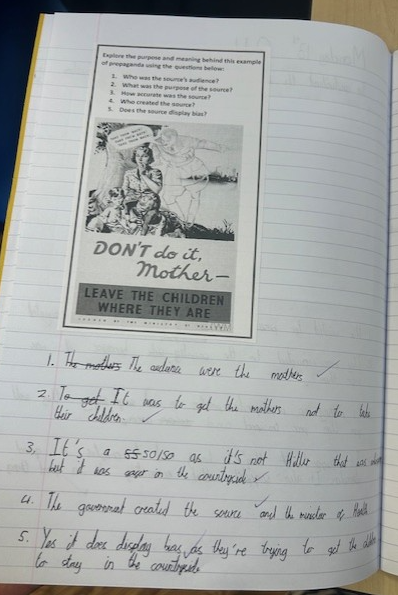 Explore the purpose and meaning behind this example
of propaganda using the questions below:
1. Who was the source's audience?
2. What was the purpose of the source?
3. How accurate was the source?
4. Who created the source?
5. Does the source display bias?
DON'T do it,
Mother—
LEAVE THE CHILDREN
WHERE THEY ARE
1. The mothers The audience were the mothers
2. To get It was to get the mothers not to take
their children.
3, It's a 50/50 as it's not Hitler that was
but it was safer in the countryside
4. The government created the source and the minister of Health
5. Yes it does display bias as they're trying to get the children
to stay in the countryside